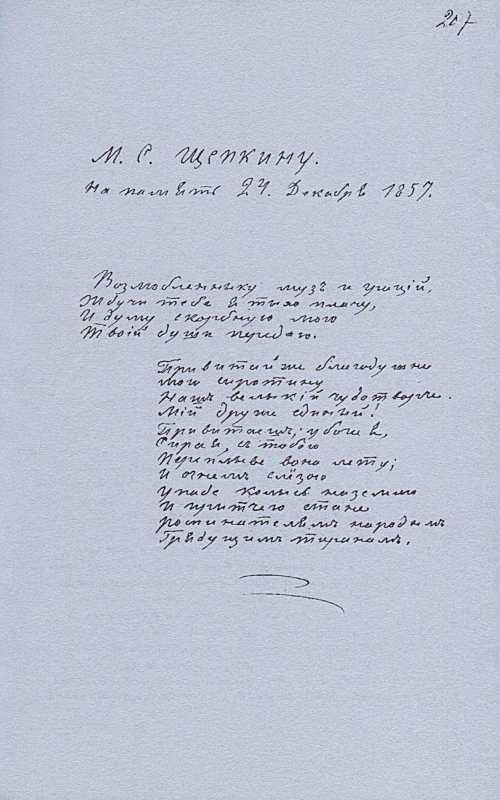 207
М. С. Щепкину.
На память 24. Декабря 1857.
Возлюбленнику музъ и грацій,
Ждучи тебе я тыхо плачу,
И думу скорбную мою
Твоій души передаю.
Привитай же благодушне
мою сиротину
Нашъ велыкій чудотворче.
Мій друже единый!
Привитаешъ; убогая,
Сирая, съ тобою
Переплыве вона лету;
И огнемъ слёзою
Упаде колысь на землю
И притчею стане
роспинателямъ народнымъ
Грядущимъ тиранамъ.